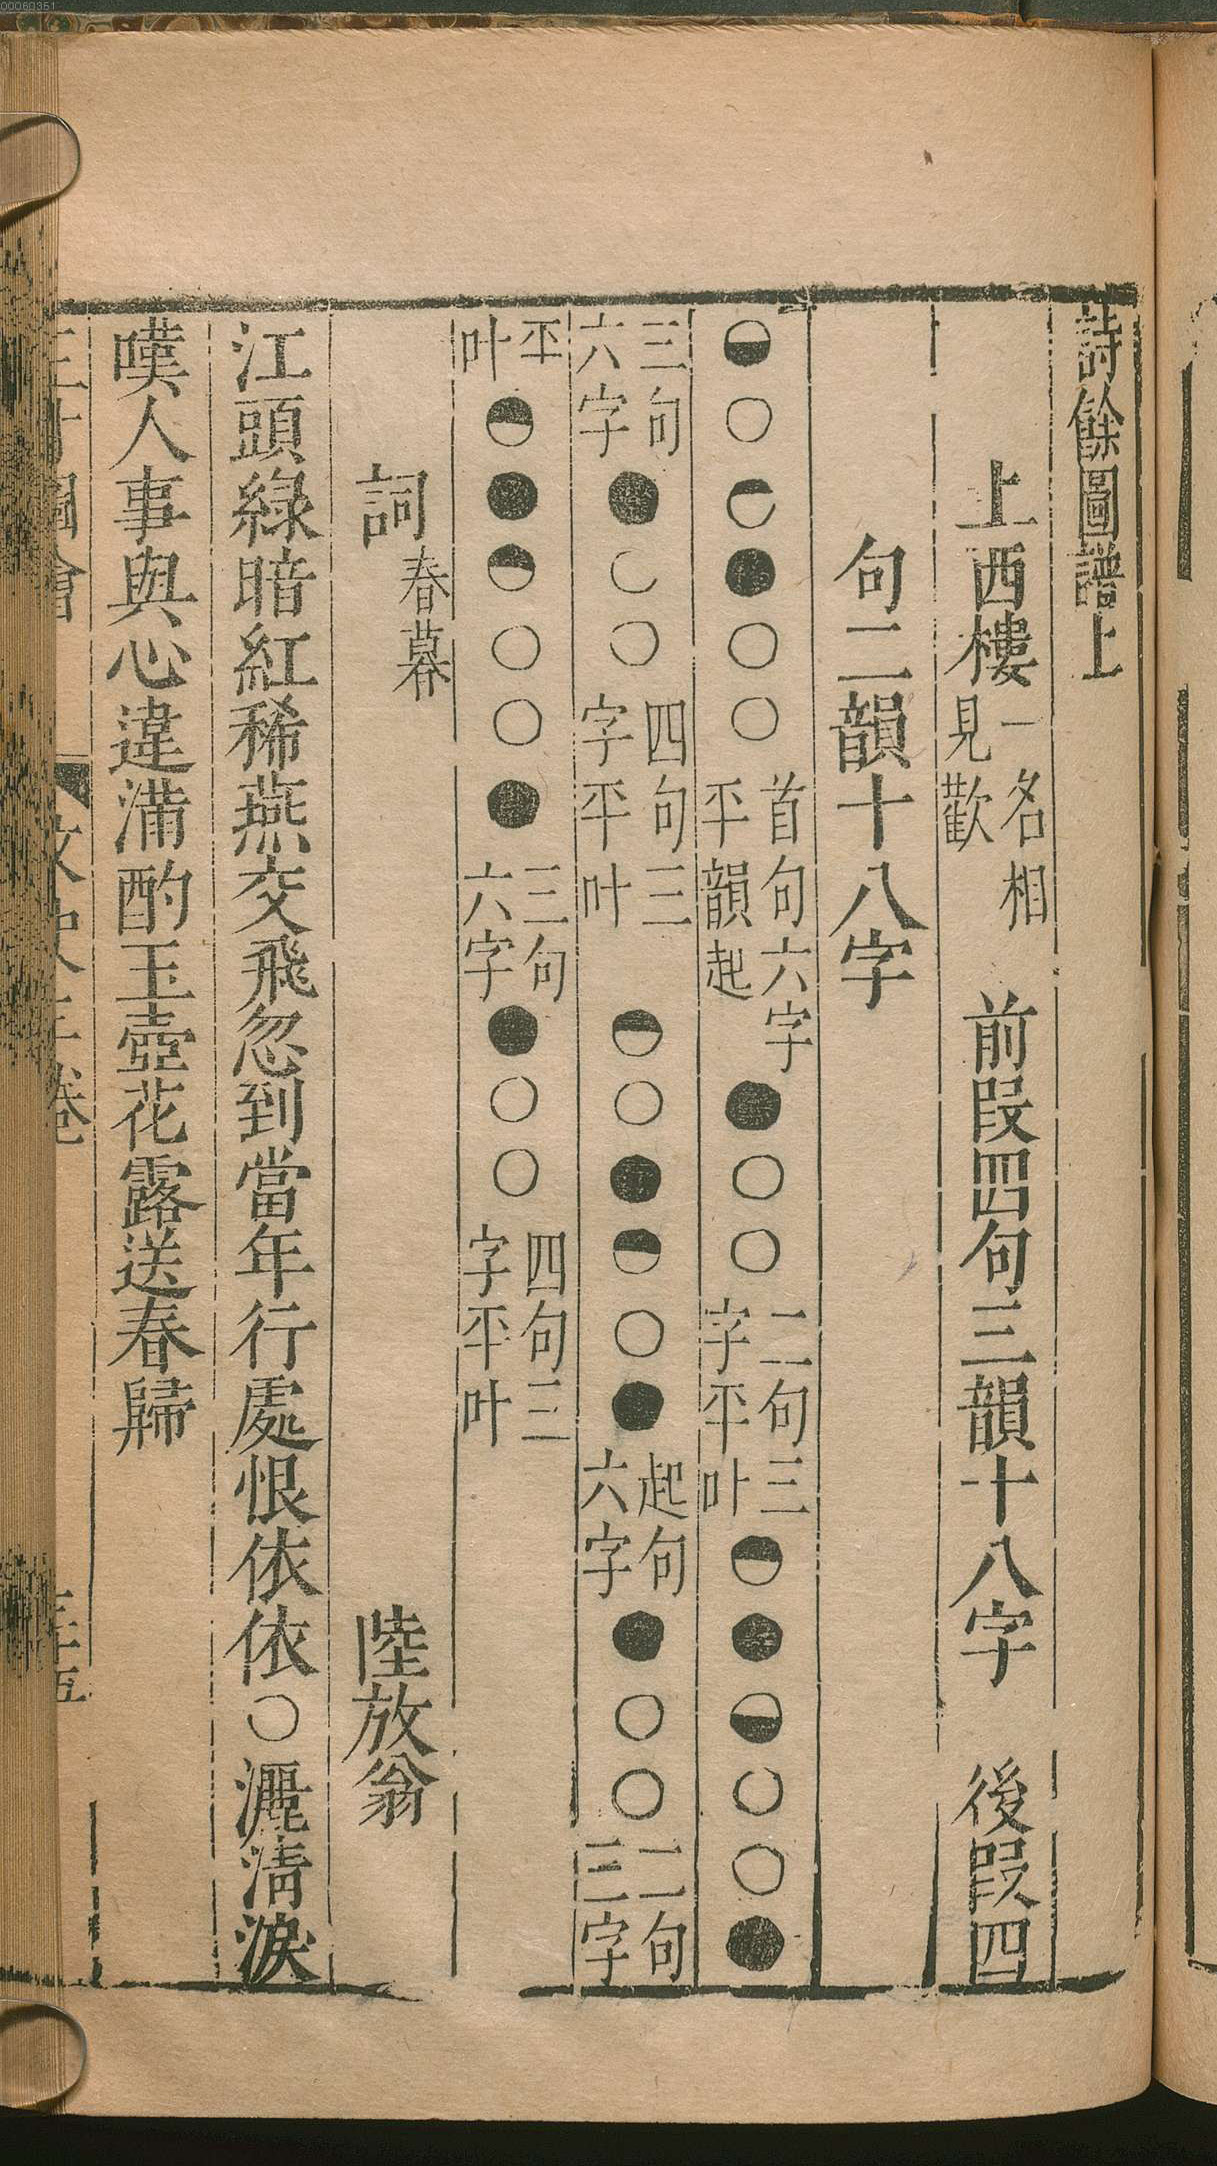 詩餘圖譜上
上西樓一名相見歡 前段四句三韻十八字 後段四
句二韻十八字
◒○◓●○○首句六字平韻起●○○二句三字平叶◓●◒○○●
三句六字●○○四句三字平叶◓○●◓○●起句六字●○○二句三字
平叶◓●◓○○●三句六字●○○四句三字平叶
詞春暮 陸放翁
江頭綠暗紅稀燕交飛忽到當年行處恨依依○灑清淚
嘆人事與心違滿酌玉壺花露送春歸
00060351